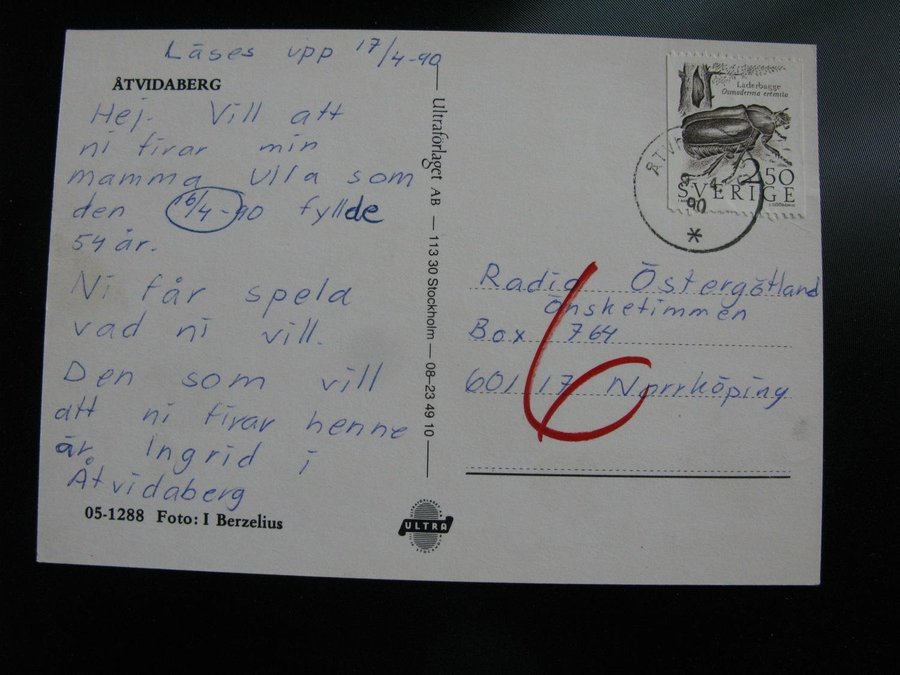 Läses upp 17/4-90
ÅTVIDABERG
Hej. Vill att
ni firar min
mamma Ulla som
den 16/4-90 fyllde
54 år.
Ni får spela
vad ni vill.
Den som vill
att ni firar henne
är Ingrid i
Åtvidaberg
05-1288 Foto: I Berzelius
Ultraförlaget AB — 113 30 Stockholm — 08-23 49 10
ULTRA
Läderbagge
Osmoderma eremita
2.50
SVERIGE
90
*
Radio Östergötland
Önsketimmen
Box 764
601 17 Norrköping
6